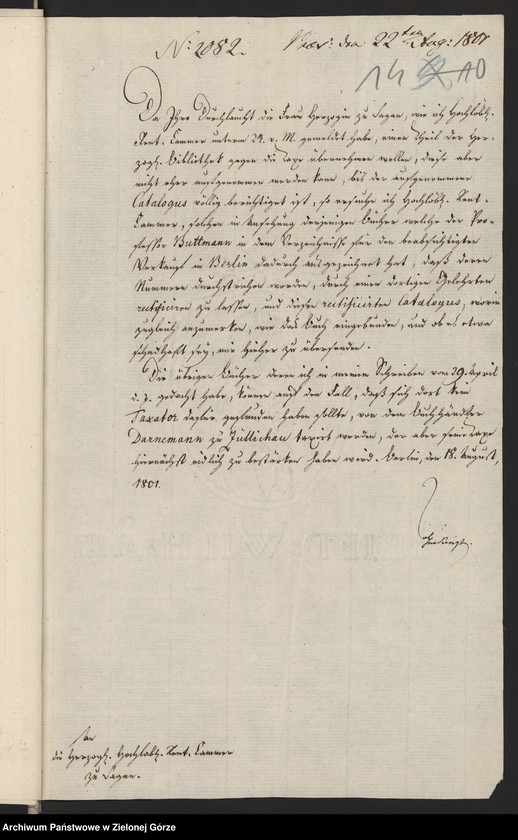 No: 2082. Præs: den 22ten Aug: 1801
14 10
Da Ihro Durchlaucht die Frau Herzogin zu Sagan, wie ich Hochlöbl.
Rent-Cammer unterm 24. v. M. gemeldet habe, einen Theil der Her-
zogl. Bibliothek gegen die Taxe übernehmen wollen, diese aber
nicht eher aufgenommen werden kann, bis der aufgenommene
Catalogus völlig berichtiget ist, so ersuche ich Hochlöbl. Rent-
Cammer, solchen in Ansehung derjenigen Bücher welche der Pro-
fessor Buttmann in dem Verzeichnisse für den beabsichtigten
Verkauf in Berlin dadurch ausgezeichnet hat, daß deren
Nummern durchstrichen worden, durch einen dortigen Gelehrten
rectificiren zu lassen, und diesen rectificirten Catalogus, worin
zugleich anzumerken, wie das Buch eingebunden, und ob es etwa
schadhaft sey, mir hieher zu übersenden.
Die übrigen Bücher deren ich in meinem Schreiben vom 29. April
d. J. gedacht habe, können auf den Fall, daß sich dort kein
Taxator dafür gefunden haben sollte, von dem Buchhändler
Darnemann zu Züllichau taxirt werden, der aber seine Taxe
hiernächst eidlich zu bestärken haben wird. Berlin, den 18. August,
1801.
An
die Herzogl. Hochlöbl. Rent-Cammer
zu Sagan.
Archiwum Państwowe w Zielonej Górze